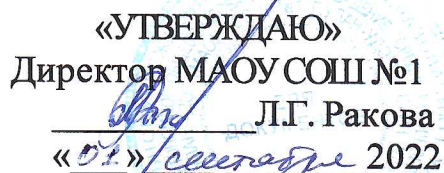 «УТВЕРЖДАЮ»
Директор МАОУ СОШ №1
Л.Г. Ракова
«01» сентября 2022